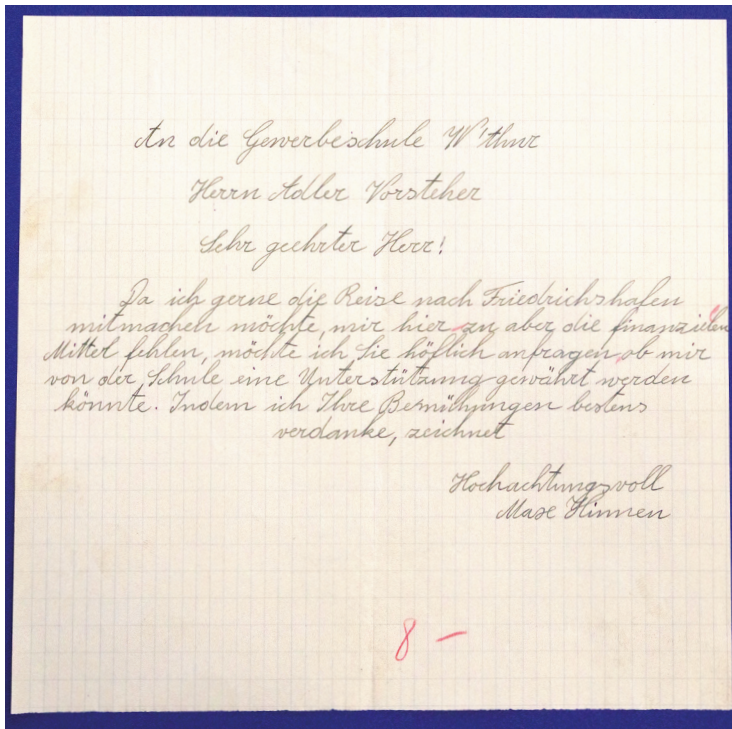 An die Gewerbeschule W'thur
Herrn Adler Vorsteher
Sehr geehrter Herr!
Da ich gerne die Reise nach Friedrichshafen
mitmachen möchte, mir hier zu aber die finanziellen
Mittel fehlen, möchte ich Sie höflich anfragen, ob mir
von der Schule eine Unterstützung gewährt werden
könnte. Indem ich Ihre Bemühungen bestens
verdanke, zeichnet
Hochachtungsvoll
Max Hinnen
8 –